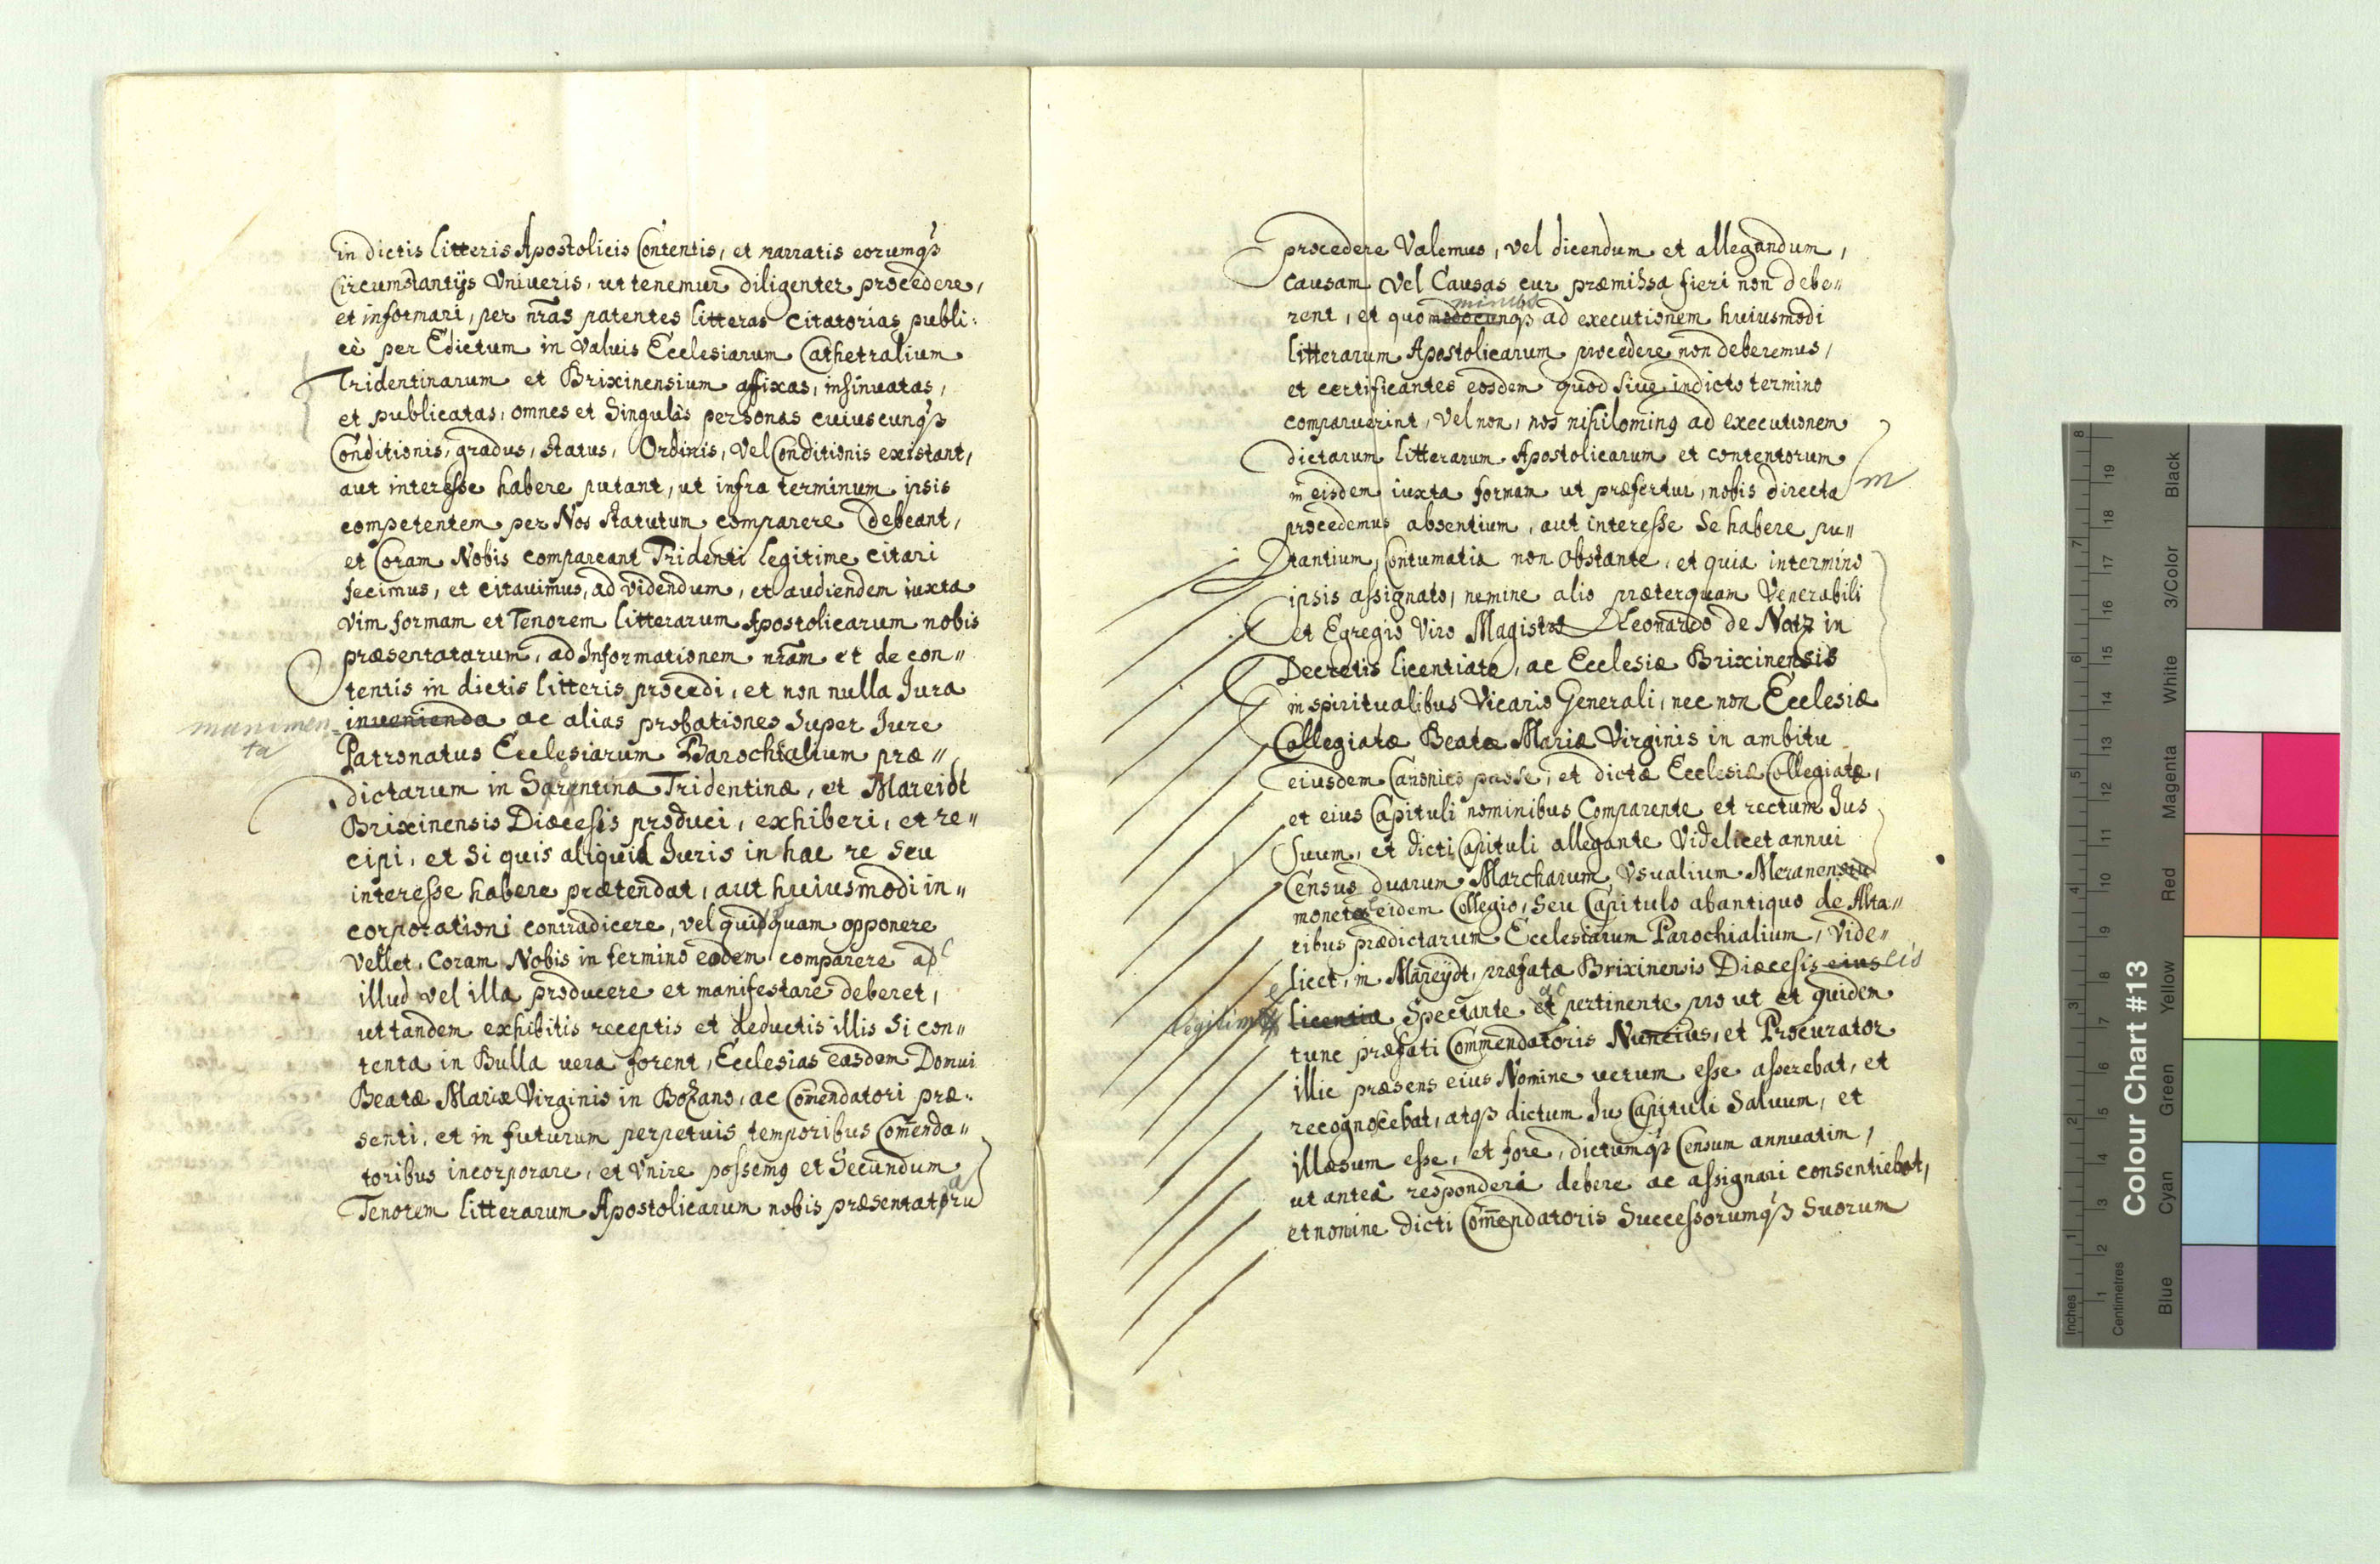 in dictis litteris Apostolicis Contentis, et narratis eorumqꝫ
Circumstantijs Vniueris, ut tenemur diligenter procedere,
et informari, per nr̃as patentes litteras Citatorias publi:
cè per Edictum in Valuis Ecclesiarum Cathetralium
Tridentinarum et Brixinensium affixas, insinuatas,
et publicatas, omnes et Singulas personas cuiuscunqꝫ
Conditionis, gradus, status, Ordinis, Vel Conditionis existant,
aut interesse habere putant, ut infra terminum ipsis
competentem per Nos statutum comparere debeant,
et Coram Nobis compareant Tridenti legitime citari
fecimus, et citauimus, ad videndum, et audiendem iuxta
vim formam et Tenorem litterarum Apostolicarum nobis
præsentatarum, ad Informationem nr̃am et de con„
tentis in dictis litteris procedi, et non nulla Jura
munimen
ta
inuenienda ac alias probationes Super Jure
Patronatus Ecclesiarum Parochialium præ„
dictarum in Sarentina Tridentinæ, et Mareidt
Brixinensis Diœcesis produci, exhiberi, et re„
cipi, et Si quis aliquid Juris in hac re Seu
interesse habere prætendat, aut huiusmodi in„
corporationi contradicere, vel quidquam opponere
vellet, Coram Nobis in termino eodem comparere ad
illud vel illa producere et manifestare deberet,
ut tandem exhibitis receptis et deductis illis Si con„
tenta in Bulla uera forent, Ecclesias easdem Domui
Beatæ Mariæ Virginis in Bozano, ac Com̃endatori præ„
senti, et in futurum perpetuis temporibus Com̃enda„
toribus incorporare, et Vnire possemꝯ et Secundum
Tenorem litterarum Apostolicarum nobis præsentatarũ
procedere Valemus, vel dicendum et allegandum,
causam vel Causas cur præmissa fieri non debe„
minus
rent, et quomodocunqꝫ ad executionem huiusmodi
litterarum Apostolicarum procedere non deberemus,
et certificantes eosdem quod siue in dicto termino
comparuerint, vel non, nos nihilominꝯ ad executionem
dictarum litterarum Apostolicarum et contentorum
in eisdem iuxta formam ut præfertur, nobis directa m
procedemus absentium, aut interesse Se habere pu„
tantium, Contumatia non obstante, et quia in termino
ipsis assignato, nemine alio præterquam Venerabili
et Egregio Viro Magistro Leonardo de Natz in
Decretis licentiato, ac Ecclesiæ Brixinensis
in spiritualibus Vicario Generali, nec non Ecclesiæ
Collegiatæ Beatæ Mariæ Virginis in ambitu
eiusdem Canonico pro se, et dictæ Ecclesiæ Collegiatæ,
et eius Capituli nominibus Comparente et rectum Jus
Suum, et dicti Capituli allegante Videlicet annui
Census duarum Marcharum Vsualium Meranensis
monetæ eidem Collegio, Seu Capitulo ab antiquo de Alta„
ribus prædictarum Ecclesiarum Parochialium, Vide„
licet, in Mareydt, præfatæ Brixinensis Diœcesis eius eis
legitime licentia Spectante et ac pertinente pro ut et quidem
tunc præfati Commendatoris Nuncius, et Procurator
illic præsens eius Nomine uerum esse asserebat, et
recognoscebat, atqꝫ dictum Ju Capituli Saluum, et
illæsum esse, et fore, dictumqꝫ Censum annuatim,
ut antea responderi debere ac assignari consentiebat,
et nomine dicti Com̃endatoris Successorumqꝫ Suorum
Inches
Centimetres
Colour Chart #13
Blue
Cyan
Green
Yellow
Red
Magenta
White
3/Color
Black